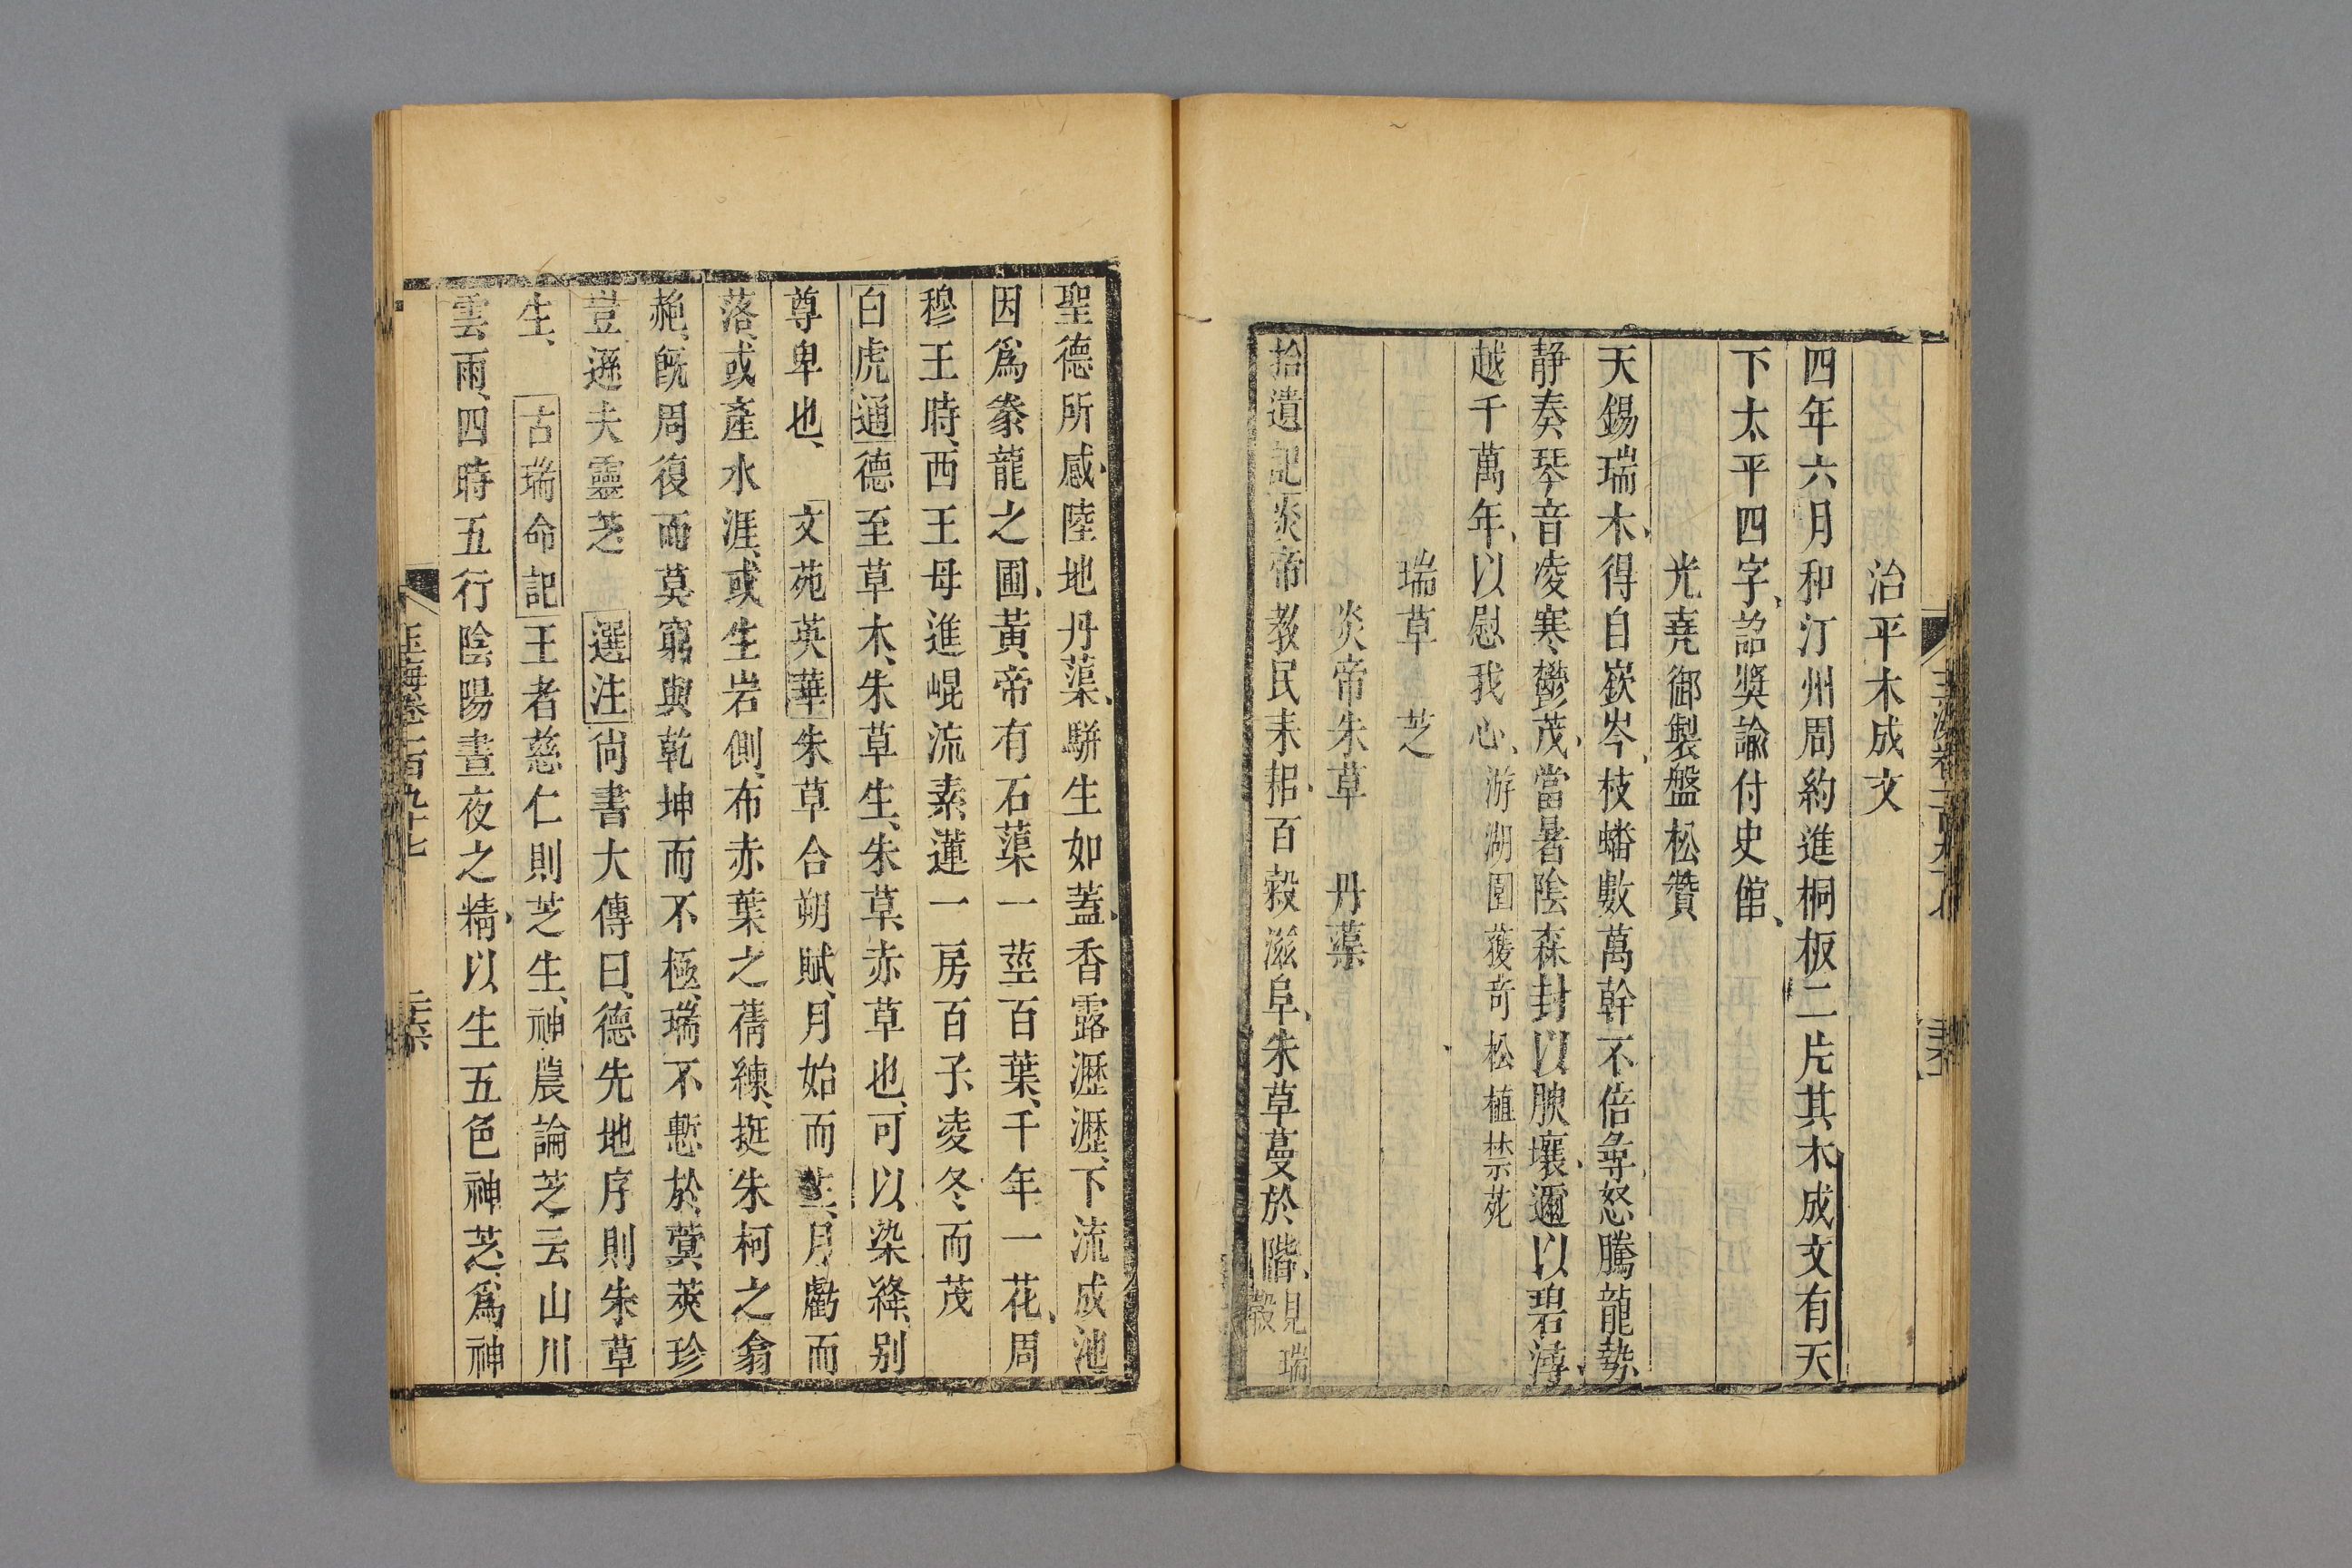 治平木成文
四年六月和汀州周約進桐板二片其木成文有天
下太平四字、詔奬諭付史館、
光堯御製盤松贊
天錫瑞木、得自嶔岑、枝蟠數萬、幹不倍尋、怒騰龍勢、
靜奏琴音、凌寒鬱茂、當暑陰森、封以腴壤、邇以碧潯、
越千萬年、以慰我心、游湖園獲奇松植禁苑
瑞草　芝
炎帝朱草　丹蕖
拾遺記炎帝教民耒耜、百穀滋阜、朱草蔓於階、見瑞穀
聖德所感陸地丹蕖、駢生如蓋、香露瀝瀝、下流成池
因爲豢龍之圃、黃帝有石蕖一莖百葉、千年一花、周
穆王時、西王母進崐流素蓮一房百子凌冬而茂
白虎通德至草木、朱草生、朱草、赤草也、可以染絳、别
尊卑也、　文苑英華朱草合朔賦、月始而生、月虧而
落、或產水涯、或生岩側、布赤葉之蒨練、挺朱柯之翕
赩、旣周復而莫窮、與乾坤而不極、瑞不慙於蓂莢、珍
豈遜夫靈芝　選注尙書大傳曰、德先地序則朱草
生、　古瑞命記王者慈仁則芝生、神農論芝云山川
雲雨、四時五行陰陽晝夜之精、以生五色神芝、爲神
玉海卷一百九十七
二六